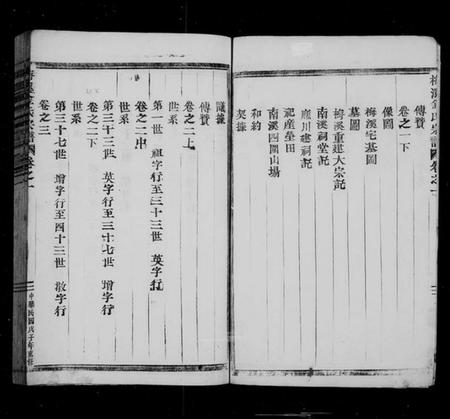 卷之一下
像圖
梅溪宅基圖
墓圖
梅溪重建大宗記
南溪祠堂記
產川建祠記
祀產墊田
南溪四圍山場
和約
契據
議據
傳贊
卷之二上
世系
第一世 祖字行至三十三世 英字行
卷之二中
世系
第三十三世 英字行至三十七世 增字行
卷之二下
世系
第三十七世 增字行至四十三世 敬字行
卷之三
中華民國戊子年重修